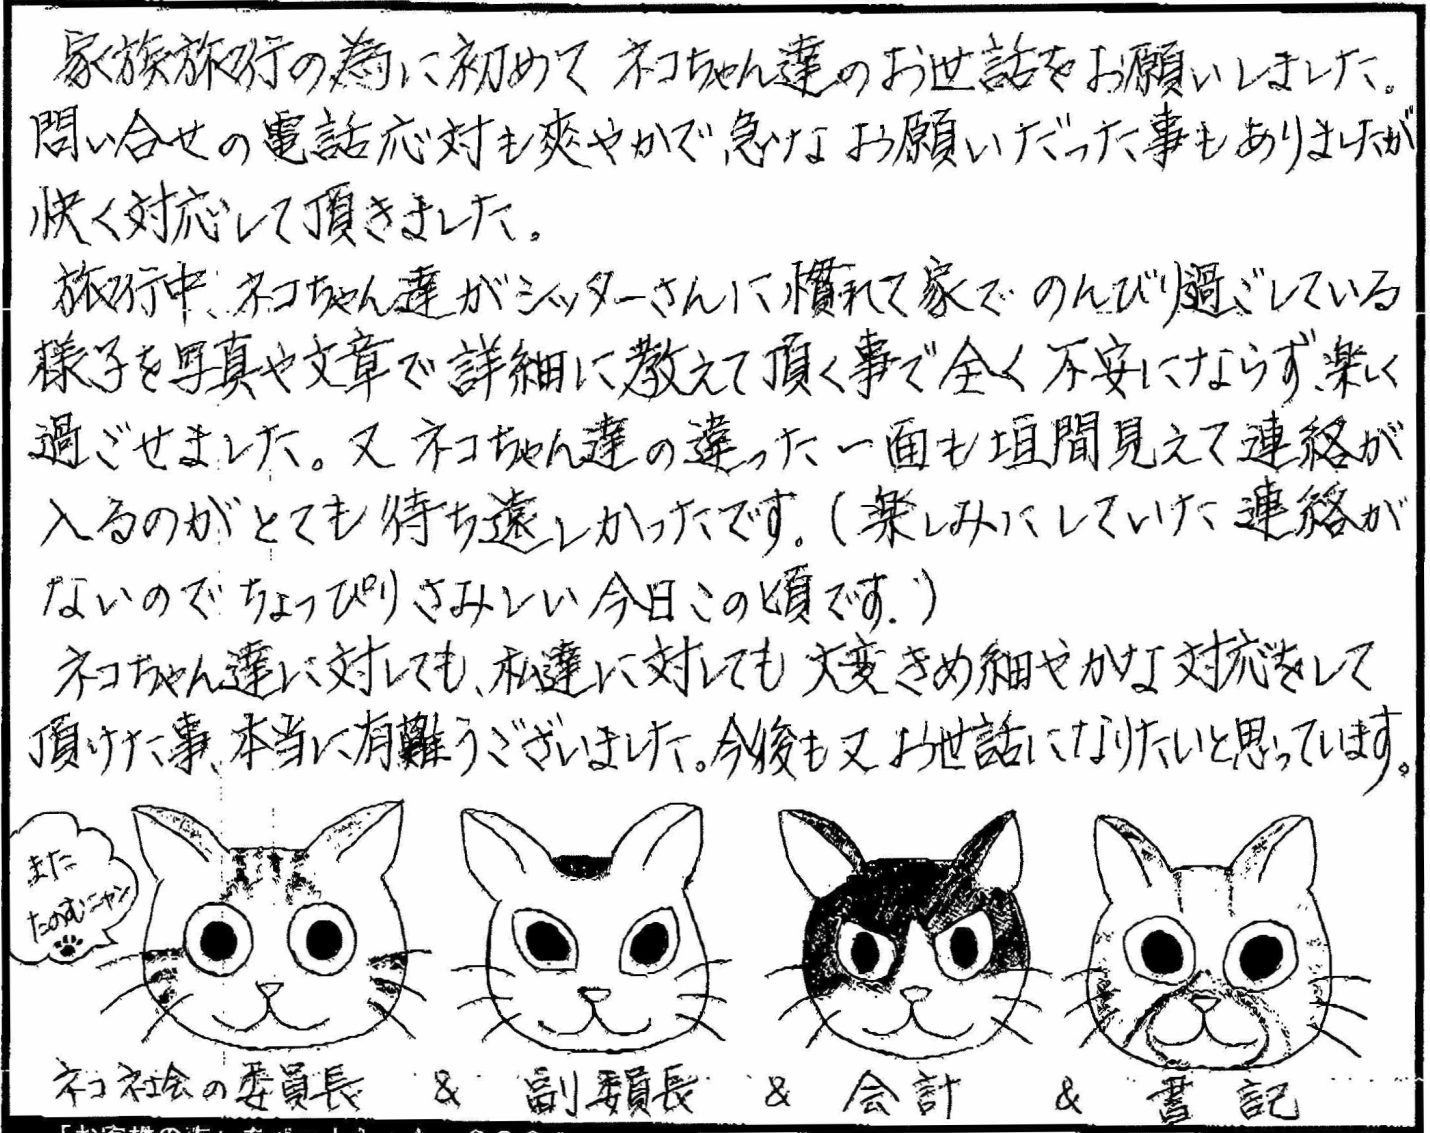 家族旅行の為に初めて ネコちゃん達のお世話をお願いしました。
問い合せの電話応対も爽やかで急なお願いだった事もありましたが
快く対応して頂きました。
旅行中、ネコちゃん達がシッターさんに慣れて家でのんびり過ごしている
様子を写真や文章で詳細に教えて頂く事で全く不安にならず、楽しく
過ごせました。又 ネコちゃん達の違った一面も垣間見えて連絡が
入るのがとても待ち遠しかったです。(楽しみにしていた連絡が
ないのでちょっぴりさみしい今日この頃です。)
ネコちゃん達に対しても、私達に対しても大変きめ細やかな対応をして
頂けた事、本当に有難うございました。今後も又お世話になりたいと思っています。
また
たのむニャン
ネコ社会の委員長 & 副委員長 & 会計 & 書記